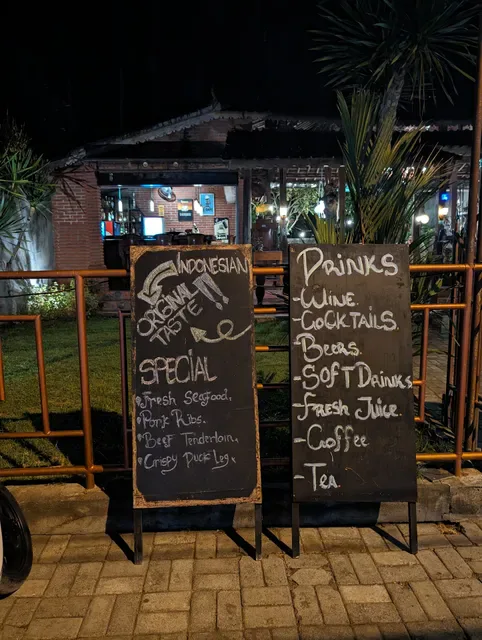 INDONESIAN
ORIGINAL
TASTE!!
SPECIAL
•Fresh Seafood.
•Pork Ribs.
•Beef Tenderloin.
•Crispy Duck Leg.
DRINKS
-WINE
-COCKTAILS.
-Beers.
-SOFT DRINKS
-FRESH JUICE.
-Coffee
-Tea